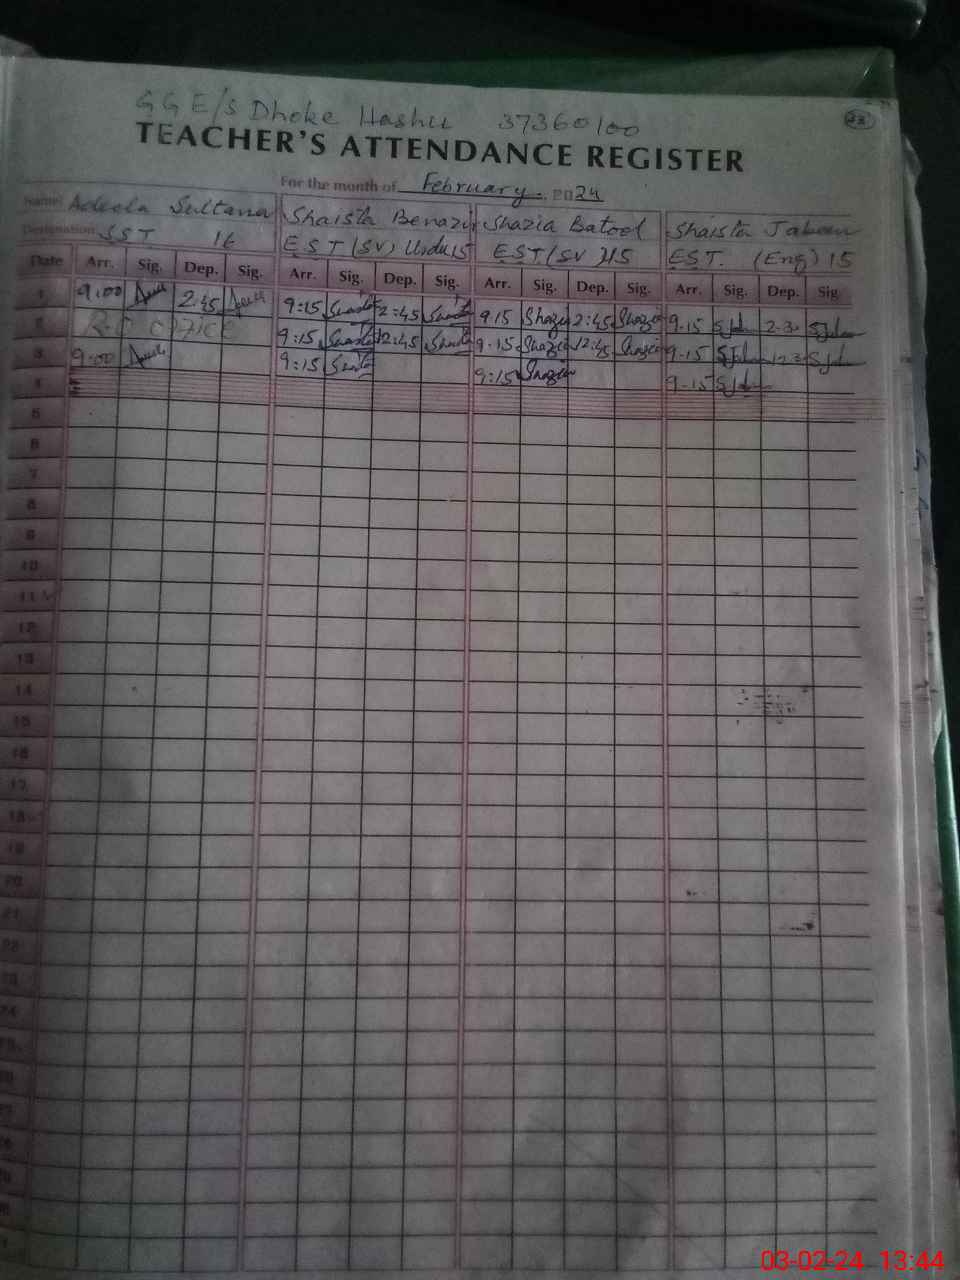 GGE/S Dhoke Hashu 37360100 23
TEACHER'S ATTENDANCE REGISTER
For the month of February. 2024
Name: Adeela Sultana Shaista Benazir Shazia Batool Shaista Jabeen
Designation SST 16 E.S.T (SV) Urdu 15 EST (SV) 15 EST. (Eng) 15
Date Arr. Sig. Dep. Sig. Arr. Sig. Dep. Sig. Arr. Sig. Dep. Sig. Arr. Sig. Dep. Sig.
1 9:00 2:45 9:15 2:45 9:15 Shazia 2:45 Shazia 9-15 SJabeen 2-30 SJabeen
2 R-O OFFICE 9:15 12:45 9:15 Shazia 12:45 Shazia 9-15 SJabeen 12-30 SJabeen
3 9:00 9:15 9:15 Shazia 9-15 SJabeen
4
5
6
7
8
9
10
11
12
13
14
15
16
17
18
19
20
21
22
23
24
03-02-24 13:44